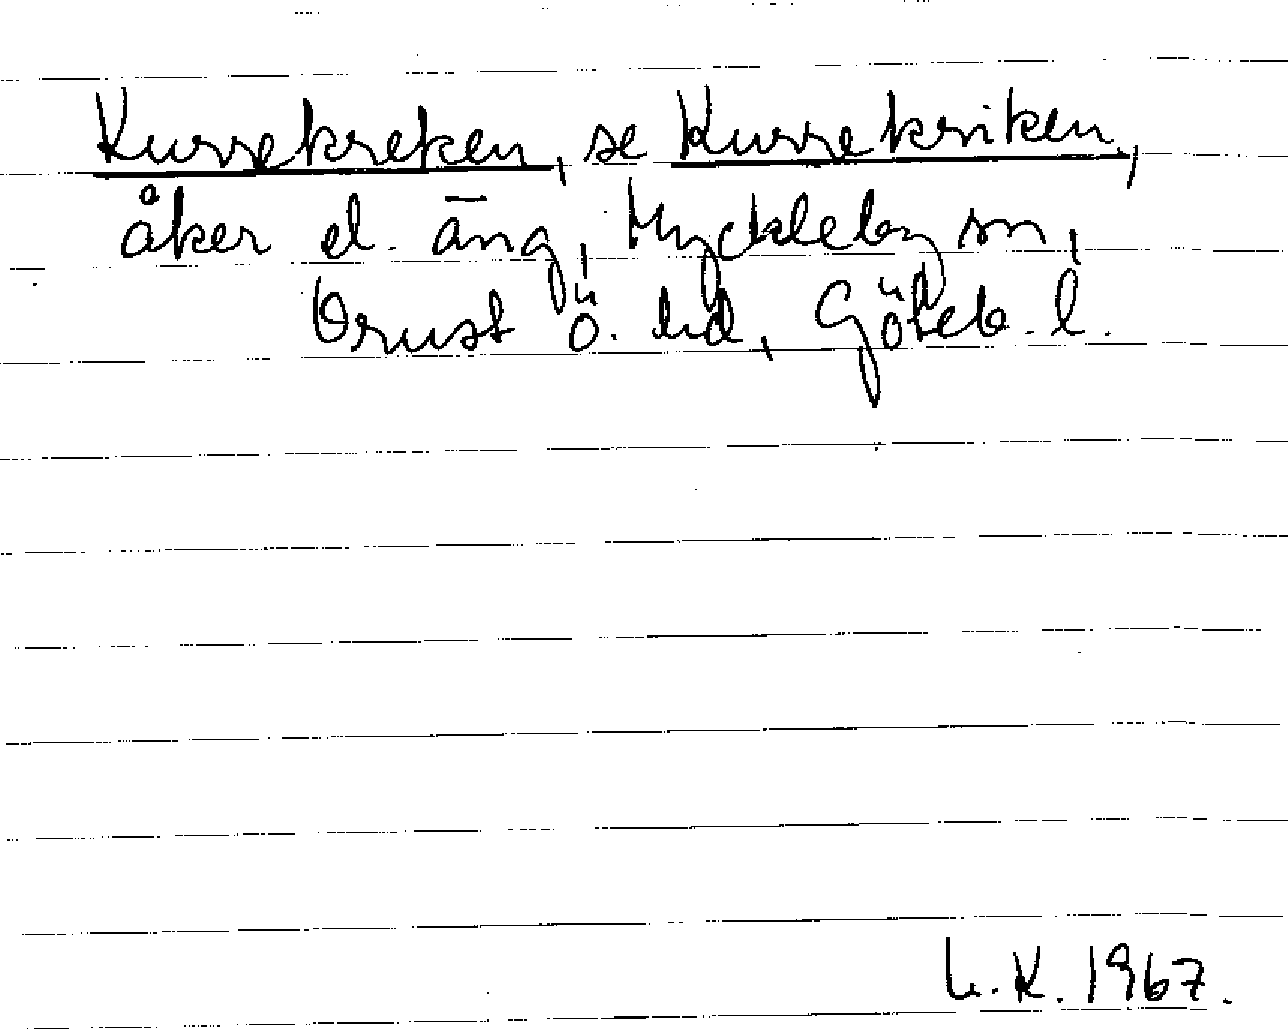 Kurrekreken, se Kurrekriken,
åker el. äng, Myckleby sn,
Orust ö. hd, Göteb. l.
L.K. 1967.